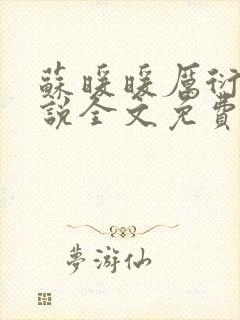 蘇暖暖厲衍
說全文免費
夢游仙